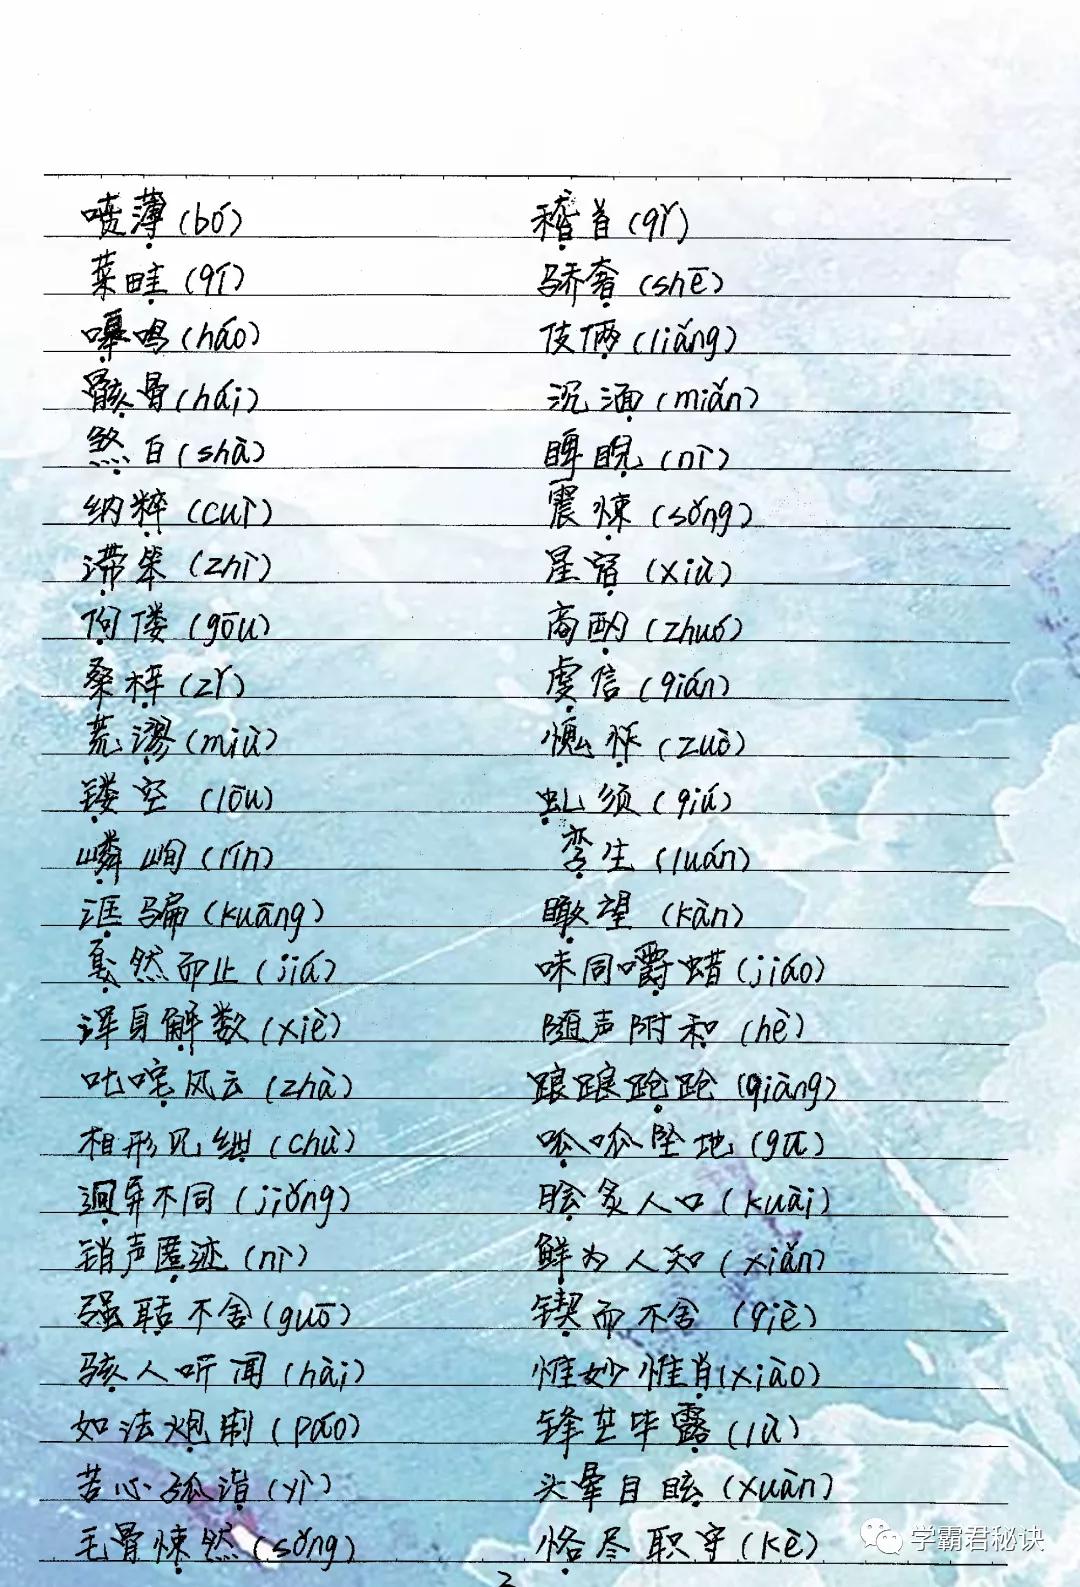 喷薄(bó) 稽首(qǐ)
菜畦(qí) 骄奢(shē)
嗥鸣(háo) 伎俩(liǎng)
骸骨(hái) 沉湎(miǎn)
煞白(shà) 睥睨(nì)
纳粹(cuì) 震悚(sǒng)
滞笨(zhì) 星宿(xiù)
佝偻(gōu) 高酌(zhuó)
桑梓(zǐ) 虔信(qián)
荒谬(miù) 愧怍(zuò)
镂空(lōu) 虬须(qiú)
嶙峋(lín) 孪生(luán)
诓骗(kuāng) 瞰望(kàn)
戛然而止(jiá) 味同嚼蜡(jiáo)
浑身解数(xiè) 随声附和(hè)
叱咤风云(zhà) 踉踉跄跄(qiàng)
相形见绌(chù) 呱呱坠地(gū)
迥异不同(jiǒng) 脍炙人口(kuài)
销声匿迹(nì) 鲜为人知(xiǎn)
强聒不舍(guō) 锲而不舍(qiè)
骇人听闻(hài) 惟妙惟肖(xiào)
如法炮制(páo) 锋芒毕露(lù)
苦心孤诣(yì) 头晕目眩(xuàn)
毛骨悚然(sǒng) 恪尽职守(kè)
学霸君秘诀
2